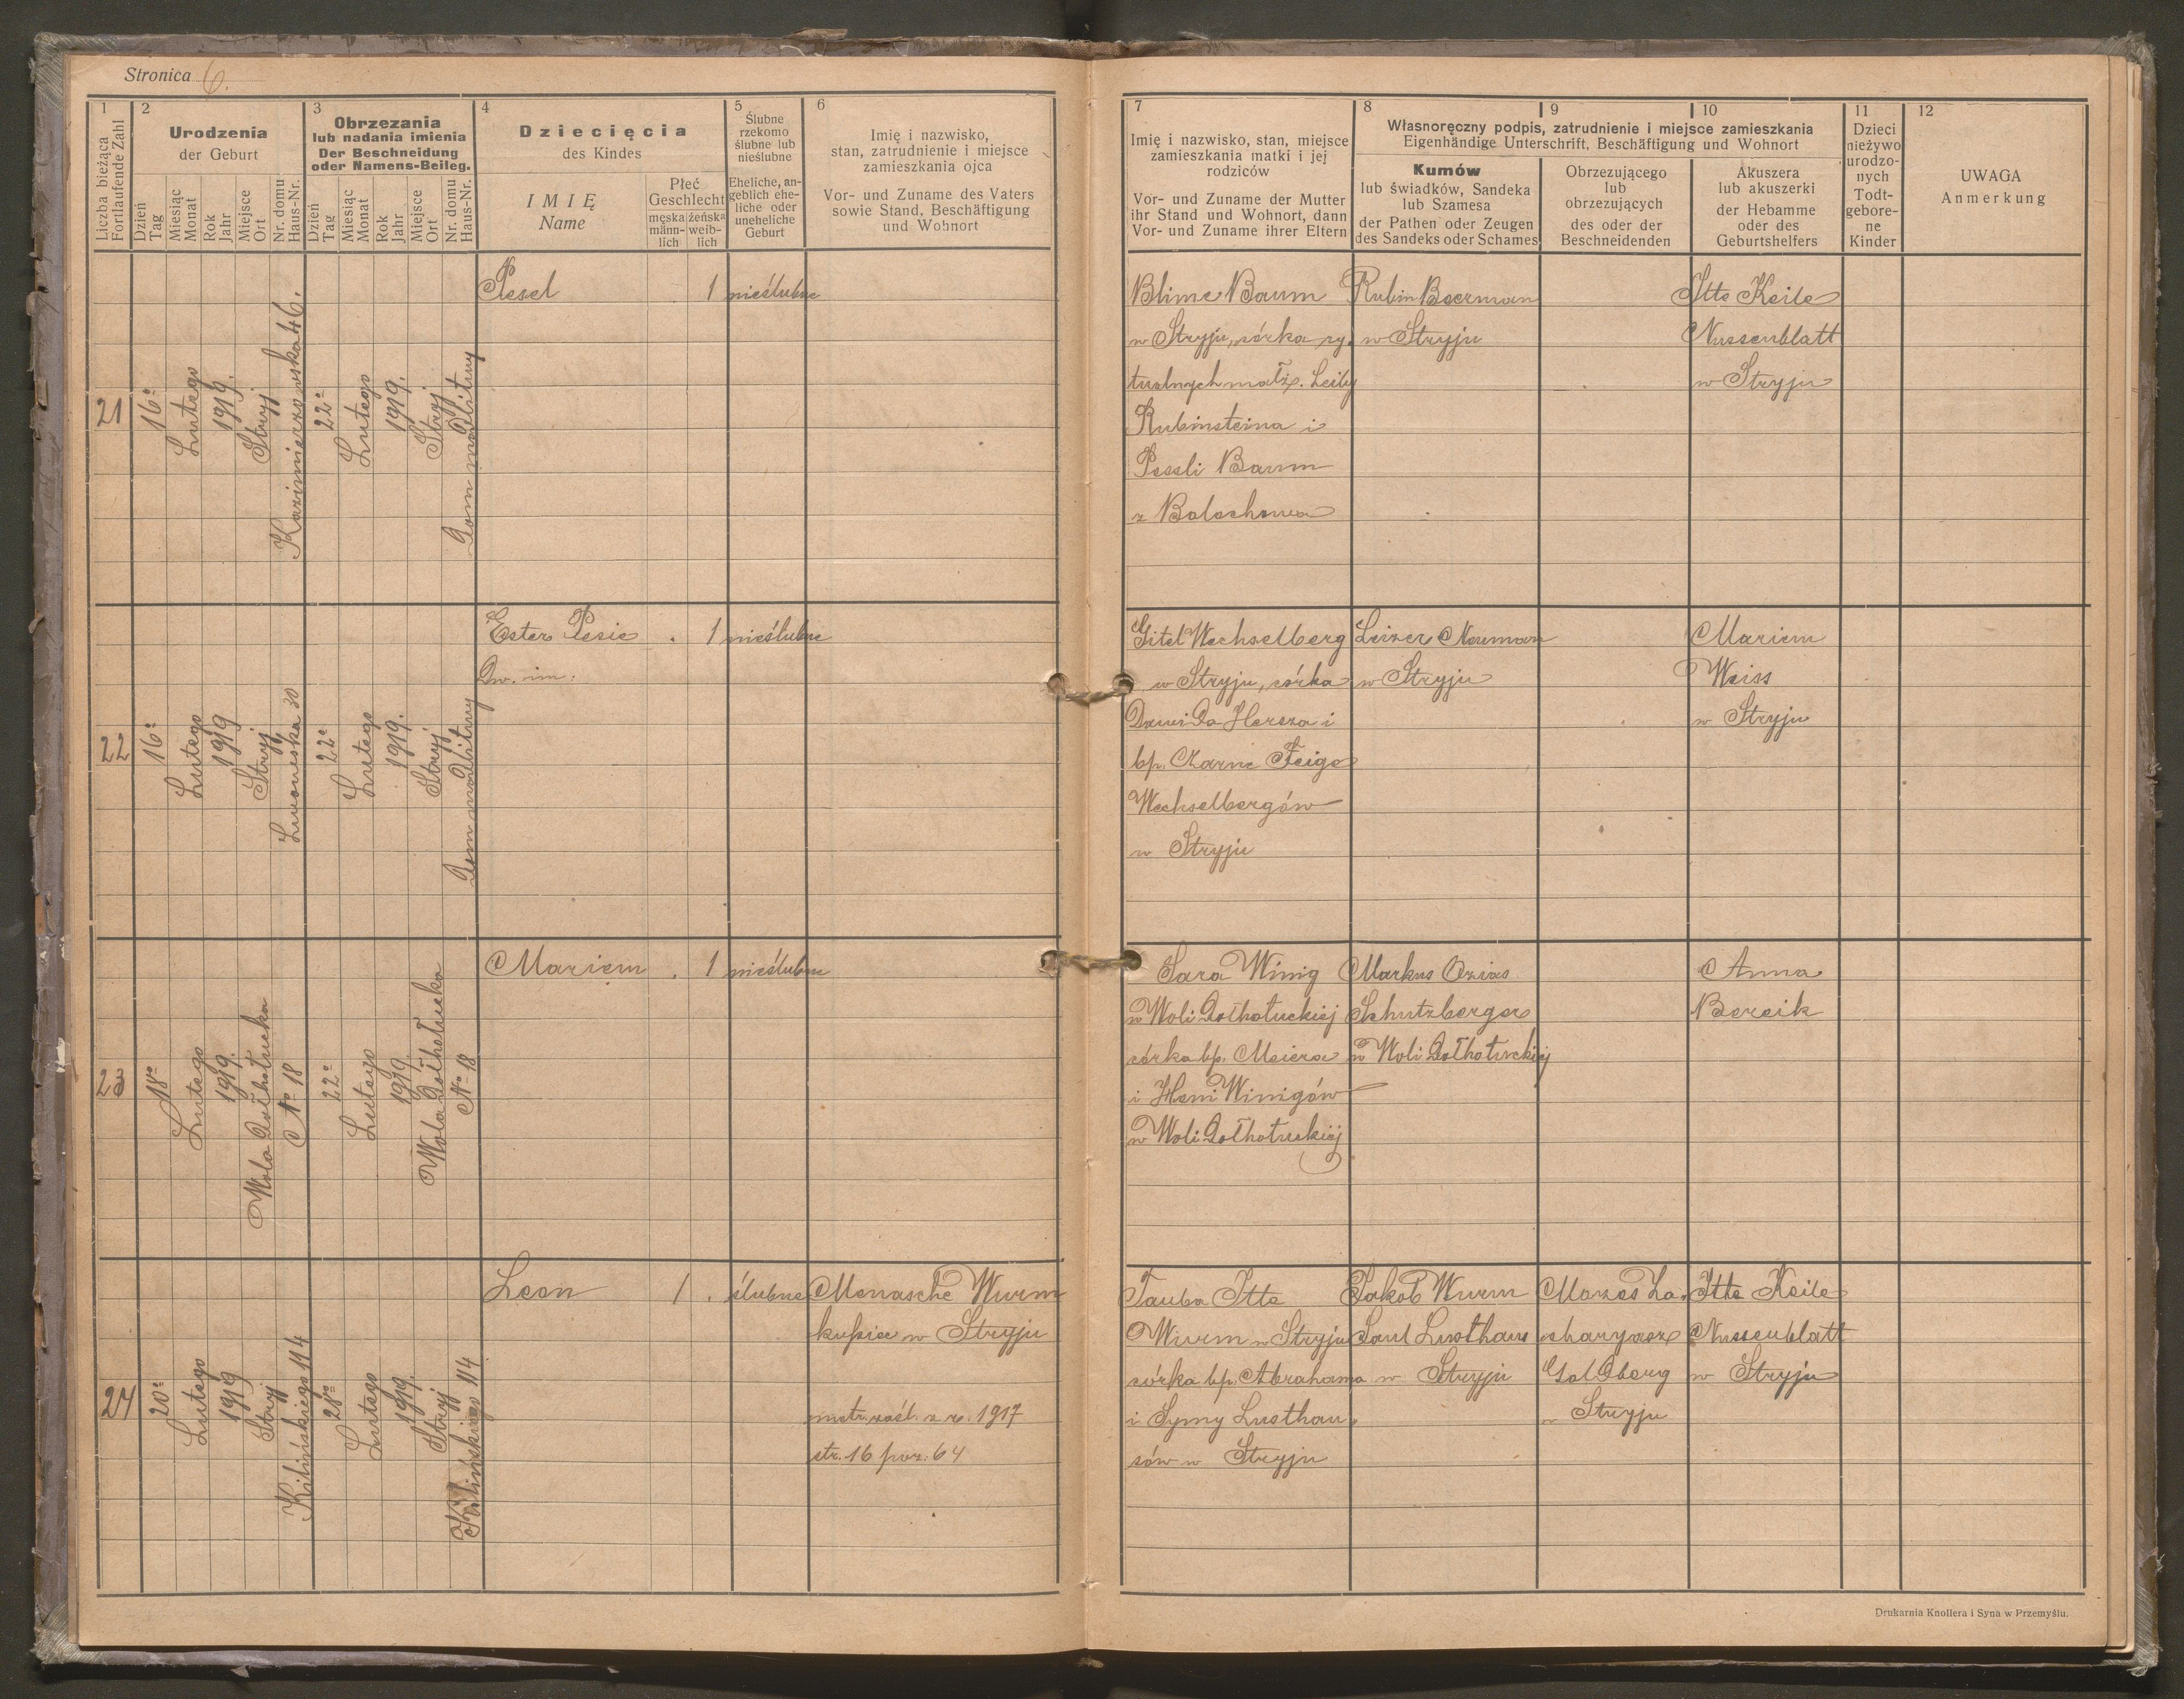 Stronica 6.
1
Liczba bieżąca
Fortlaufende Zahl
2
Urodzenia
der Geburt
Dzień
Tag
Miesiąc
Monat
Rok
Jahr
Miejsce
Ort
Nr. domu
Haus-Nr.
3
Obrzezania
lub nadania imienia
Der Beschneidung
oder Namens-Beileg.
Dzień
Tag
Miesiąc
Monat
Rok
Jahr
Miejsce
Ort
Nr. domu
Haus-Nr.
4
Dziecięcia
des Kindes
IMIĘ
Name
Płeć
Geschlecht
męska
männ-
lich
żeńska
weib-
lich
5
Ślubne
rzekomo
ślubne lub
nieślubne
Eheliche, an-
geblich ehe-
liche oder
uneheliche
Geburt
6
Imię i nazwisko,
stan, zatrudnienie i miejsce
zamieszkania ojca
Vor- und Zuname des Vaters
sowie Stand, Beschäftigung
und Wohnort
7
Imię i nazwisko, stan, miejsce
zamieszkania matki i jej
rodziców
Vor- und Zuname der Mutter
ihr Stand und Wohnort, dann
Vor- und Zuname ihrer Eltern
8
9
10
Własnoręczny podpis, zatrudnienie i miejsce zamieszkania
Eigenhändige Unterschrift, Beschäftigung und Wohnort
Kumów
lub świadków, Sandeka
lub Szamesa
der Pathen oder Zeugen
des Sandeks oder Schames
Obrzezującego
lub
obrzezujących
des oder der
Beschneidenden
Akuszera
lub akuszerki
der Hebamme
oder des
Geburtshelfers
11
Dzieci
nieżywo
urodzo-
nych
Todt-
gebore-
ne
Kinder
12
UWAGA
Anmerkung
21
16.
Lutego
1919.
Stryj
Kazimierzowska 46.
22.
Lutego
1919.
Stryj
Dom modlitwy
Pesel
1
nieślubne
Blime Baum
w Stryju, córka ry.
tualnych małż. Leiby
Rubinsteina i
Pessli Baum
z Bolechowa
Rubin Beerman
w Stryju
Itte Keile
Nussenblatt
w Stryju
22
16.
Lutego
1919
Stryj
Lwowska 30
22.
Lutego
1919.
Stryj
Dom modlitwy
Ester Pesie
Dw. im.
. 1
nieślubne
Gitel Wechselberg
w Stryju, córka
Dawida Hersza i
bp. Czarne Feige
Wechselbergów
w Stryju
Leizer Neuman
w Stryju
Mariem
Weiss
w Stryju
23
18.
Lutego
1919.
Wola Dołhołucka
No 18
22.
Lutego
1919.
Wola Dołhołucka
No 18
Mariem
. 1
nieślubne
Sara Winig
w Woli Dołhołuckiej
córka bp. Meiera
i Heni Winigów
w Woli Dołhołuckiej
Markus Ozias
Schutzberger
w Woli Dołhołuckiej
Anna
Bereik
24
20.
Lutego
1919
Stryj
Kilińskiego 114
28.
Lutego
1919.
Stryj
Kilińskiego 114
Leon
1 .
ślubne
Menasche Wurm
kupiec w Stryju
metr. zaśl. z r. 1917
str. 16 poz. 64
Tauba Itte
Wurm w Stryju
córka bp. Abrahama
i Symy Lusthau.
sów w Stryju
Jakob Wurm
Saul Lusthaus
w Stryju
Mozes Za.
charyasz
Goldberg
w Stryju
Itte Keile
Nussenblatt
w Stryju
Drukarnia Knollera i Syna w Przemyślu.